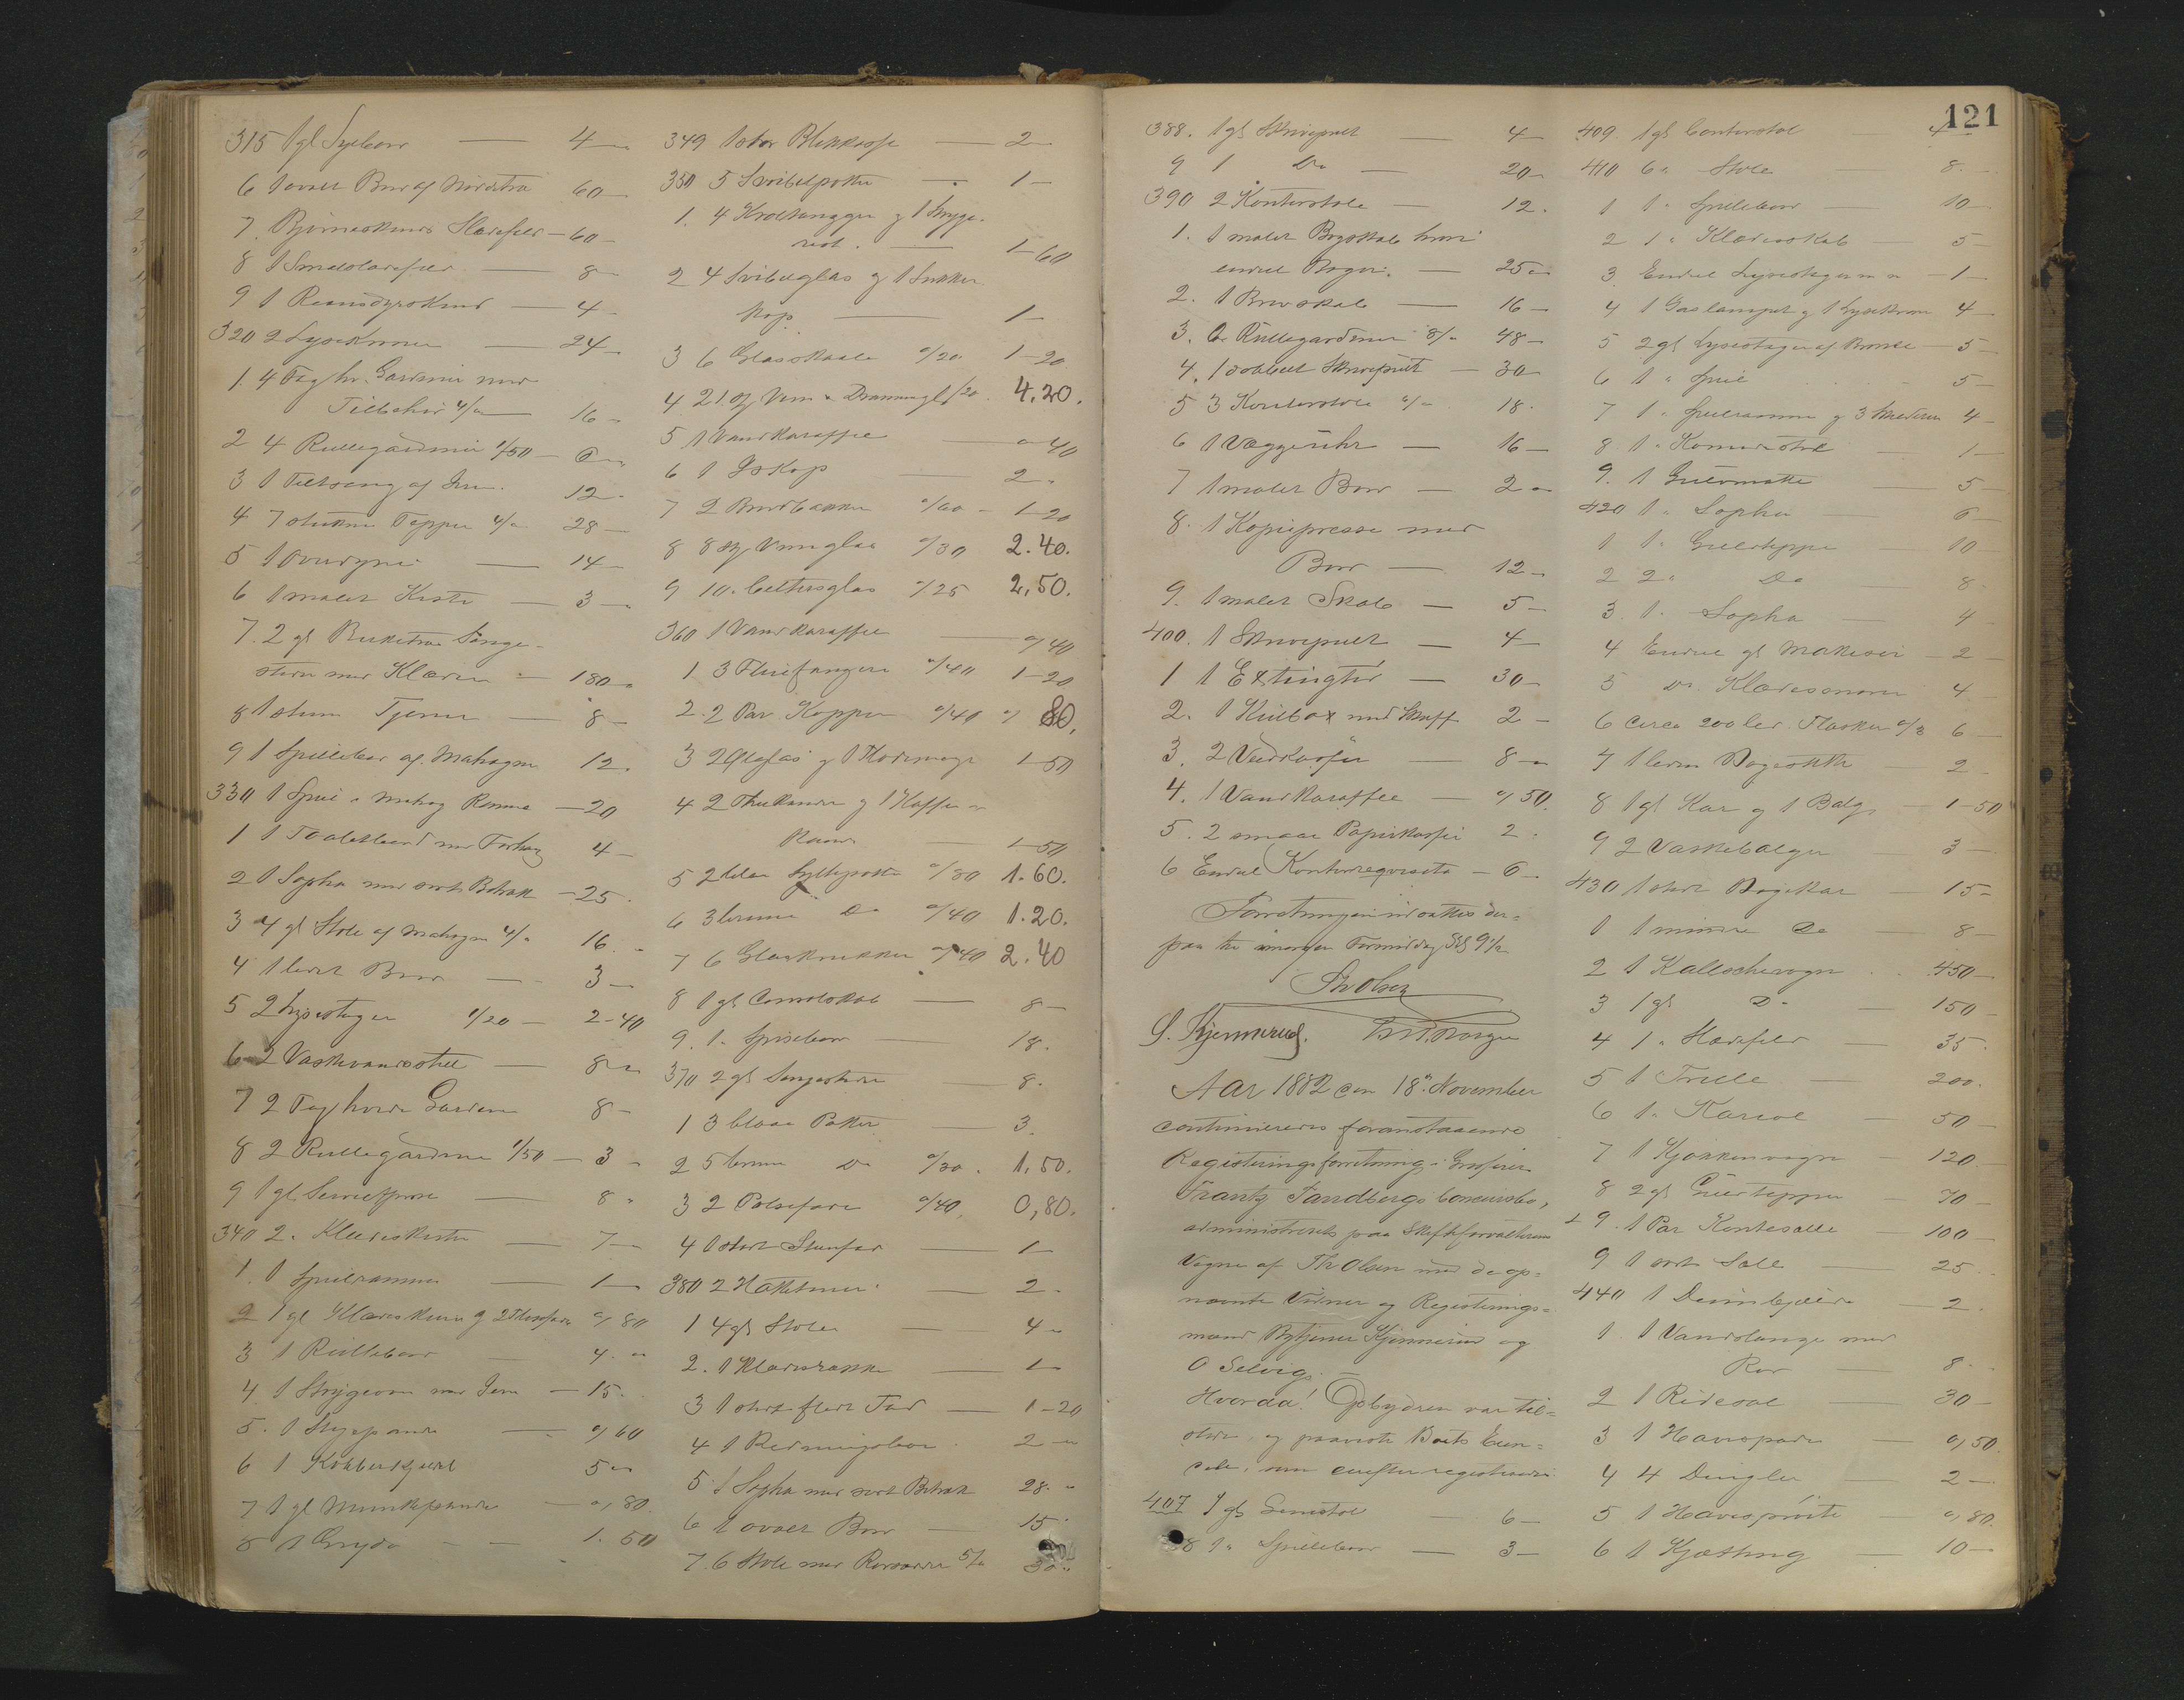 315 1 gl Sybord — 4 —
6 1 ovalt Bord af Nöddetræ 60 —
7. Bjørneskinds Slædefeld — 60 —
8 1 Smalslædefeld — 8 —
9 1 Reensdyrskind — 4 —
320 2 Lysekroner — 24 —
1. 4 Fag hv. Gardiner med
Tilbehør 4/„ 16 „
2 4 Rullegardiner 1/50 — 6 „
3 1 Feltseng af Jern. 12 „
4 7 Tepper 4/„ 28 —
5 1 Overdyne — 14 —
6 1 malet Kiste — 3 — „
7. 2 gl Birketræs Senge-
steder med Klæder — 180 — „
8 1 stum Tjener — 8 —
9 1 Spillebord af Mahogni 12.
330 1 Speil i mahog Ramme — 20
1 1 Toiletbord med Forhæng 4 —
2 1 Sopha med sort Betræk — 25.
3 4 gl Stole af Mahogni 4/„ 16. „
4 1 lidet Bord — 3 —
5 2 Lysestager 1/20 — 2-40
6 2 Vaskevandsstel — 8 — „
7 2 Fag hvide Gardiner 8 —
8 2 Rullegardiner 1/50 — 3 „
9 1 gl Servietpresse — 8 „
340 2. Klædeskister — 7 —
1. 1 Speilramme — 1 —
2 1 gl Klædeskurv g 2 0/80
3 1 Rullebord — 4. „
4 1 Strygeovn med Jern — 15.
5. 1 Stegepande — 0/60
6 1 Kobberkjedel 5 „
7 1 gl Munkepande — 0,80.
8 1 Gryde — 1. 50
349 1 stor Blikkasse — 2 —
350 5 Svibelpotter — 1 —
1. 4 g 1 Stryge-
rist. — 1-60
2 4 Svibelglas g 1 Sukker
kop — 1 —
3 6 Glasskaale 0/20. 1-20
4 21. Stk Vin & Dramme gl/20. 4.20.
5 1 Vandkaraffel — 0-40
6 1 Iskop — 2 „
7 2 Brødbakker 0/60 — 1-20
8 8 Stk Vinglas 0/30 2.40.
9 10. Seltersglas 0/25 2,50.
360 1 Vandkaraffel — 0/40
1 3 Fluefangere 0/40 1-20
2. 2 Par Kopper 0/40 0/80.
3 2 g 1 1-50
4 2 Thekander g 1 Kaffe-
Kande — 1-50
5 2 Syltepotter 0/80 1.60.
6 3 brune Do 0/40 1.20.
7 6 Glaskrukker 0/40 2.40
8 1 gl Cornelskab — 8 —
9. 1. Spisebord — 18.
370 2 gl Sengesteder — 8.
1 3 blaae Potter — 3.
2 5 brune Do 0/30. 1,50.
3 2 Polsefade 0/40. 0,80.
4 1 stort Steenfad — 1 —
380 2 — 2 „
1 4 gl Stole — 4 „
2. 1 Klædesrække — 1 —
3 1 stort fladt Fad — 1-20
4 1 Redningsbor. 2 — „
5 1 Sopha med sort Betræk 28. „
6 1 ovalt Bord — 15.
7. 6 Stole med 5/„ 30 „
121
388. 1 gl Skrivepult — 4 —
9 1 Do — 20 „
390 2 Kontorstole — 12.
1. 1 malet Bogskab hvori
endel Bøger. — 25 „
2. 1 Brevskab — 16 —
3. 6. Rullegardiner 8/„ 48 —
4. 1 dobbelt Skrivepult — 30 „
5 3 Kontorstole 6/„ 18.
6 1 Væggeuhr — 16 —
7 1 malet Bord — 2 „
8. 1 Kopiepresse med
Bord — 12 „
9. 1 malet Skab — 5 —
400. 1 Skrivepult — 4 —
1 1 Extingtør — 30 —
2. 1 Kulbox med Skuff 2 —
3. 2 Vedkasser — 8 „
4. 1 Vandkaraffel — 0,50.
5. 2 smaae Papirkasser 2 „
6 Endel Kontorreqvisita — 6 „
Forretningen udsattes der-
paa til imorgen Formiddag Kl 9½
Th Olsen
S. Kjennerud.
Aar 1882 den 18de November
continueredes foranstaaende
Registreringsforretning i Grosserer
Frantz Sandbergs Concursbo,
administreret paa Skifteforvalterens
Vegne af Th Olsen med de op-
nævnte Vidner og Registrerings-
mænd Bytjener Kjennerud og
O Selvig. —
Hvorda! Opbyderen var til-
stede, og paaviste Boets Eien-
dele, som derefter registreredes:
407 1 gl Lænestol — 6 —
8 1 „ Spillebord — 3 —
409. 1 gl Contorstol — 4
410 6 „ Stole — 8. —
1 1 „ Spillebord — 10 —
2 1 „ Klædesskab — 5 —
3 Endel Lysestager m m — 1 —
4 1 Gaslampet g 1 Lysekrone 4 —
5 2 gl Lysestager af Bronce — 5 —
6 1 „ Speil . . . 5 —
7 1 „ Speilramme g 3 Malerier 4 —
8. 1 „ Komodestol — 1 —
9. 1 Gulvmatte — 5 —
420 1 „ Sopha — 6 —
1 1 „ Gulvteppe — 10 —
2 2 „ Do — 8 —
3. 1 „ Sopha — 4
4 Endel gl Makiser — 2
5 Do. Klædessnore 4 —
6 Circa 200 led. Flasker 0/3 6 —
7 1 liden Vognstitte — 2 —
8 1 gl Kar g 1 Balg. — 1-50
9 2 Vaskebalger — 3 —
430 1 stort Bøgekar — 15 —
1 1 mindre Do — 8 —
2 1 Kaleschevogn . . 450 —
3 1 gl Do — 150 —
4 1 „ Slædefeld — 35 „
5 1 Trille — 200.
6 1 „ Kariol — 50 —
7 1 Kjøkkenvogn — 120.
8 2 gl Gulvtepper — 70 —
9. 1 Par — 100 —
9 1 sort Sæle — 25 „
440 1 — 2.
1 1 Vandslange med
Rør — 8. —
2 1 Ridesal — 30 —
3 1 Havespade — 0,50.
4 4 Dungler — 2 —
5 1 Havesprøite — 0,80.
6 1 — 10 —